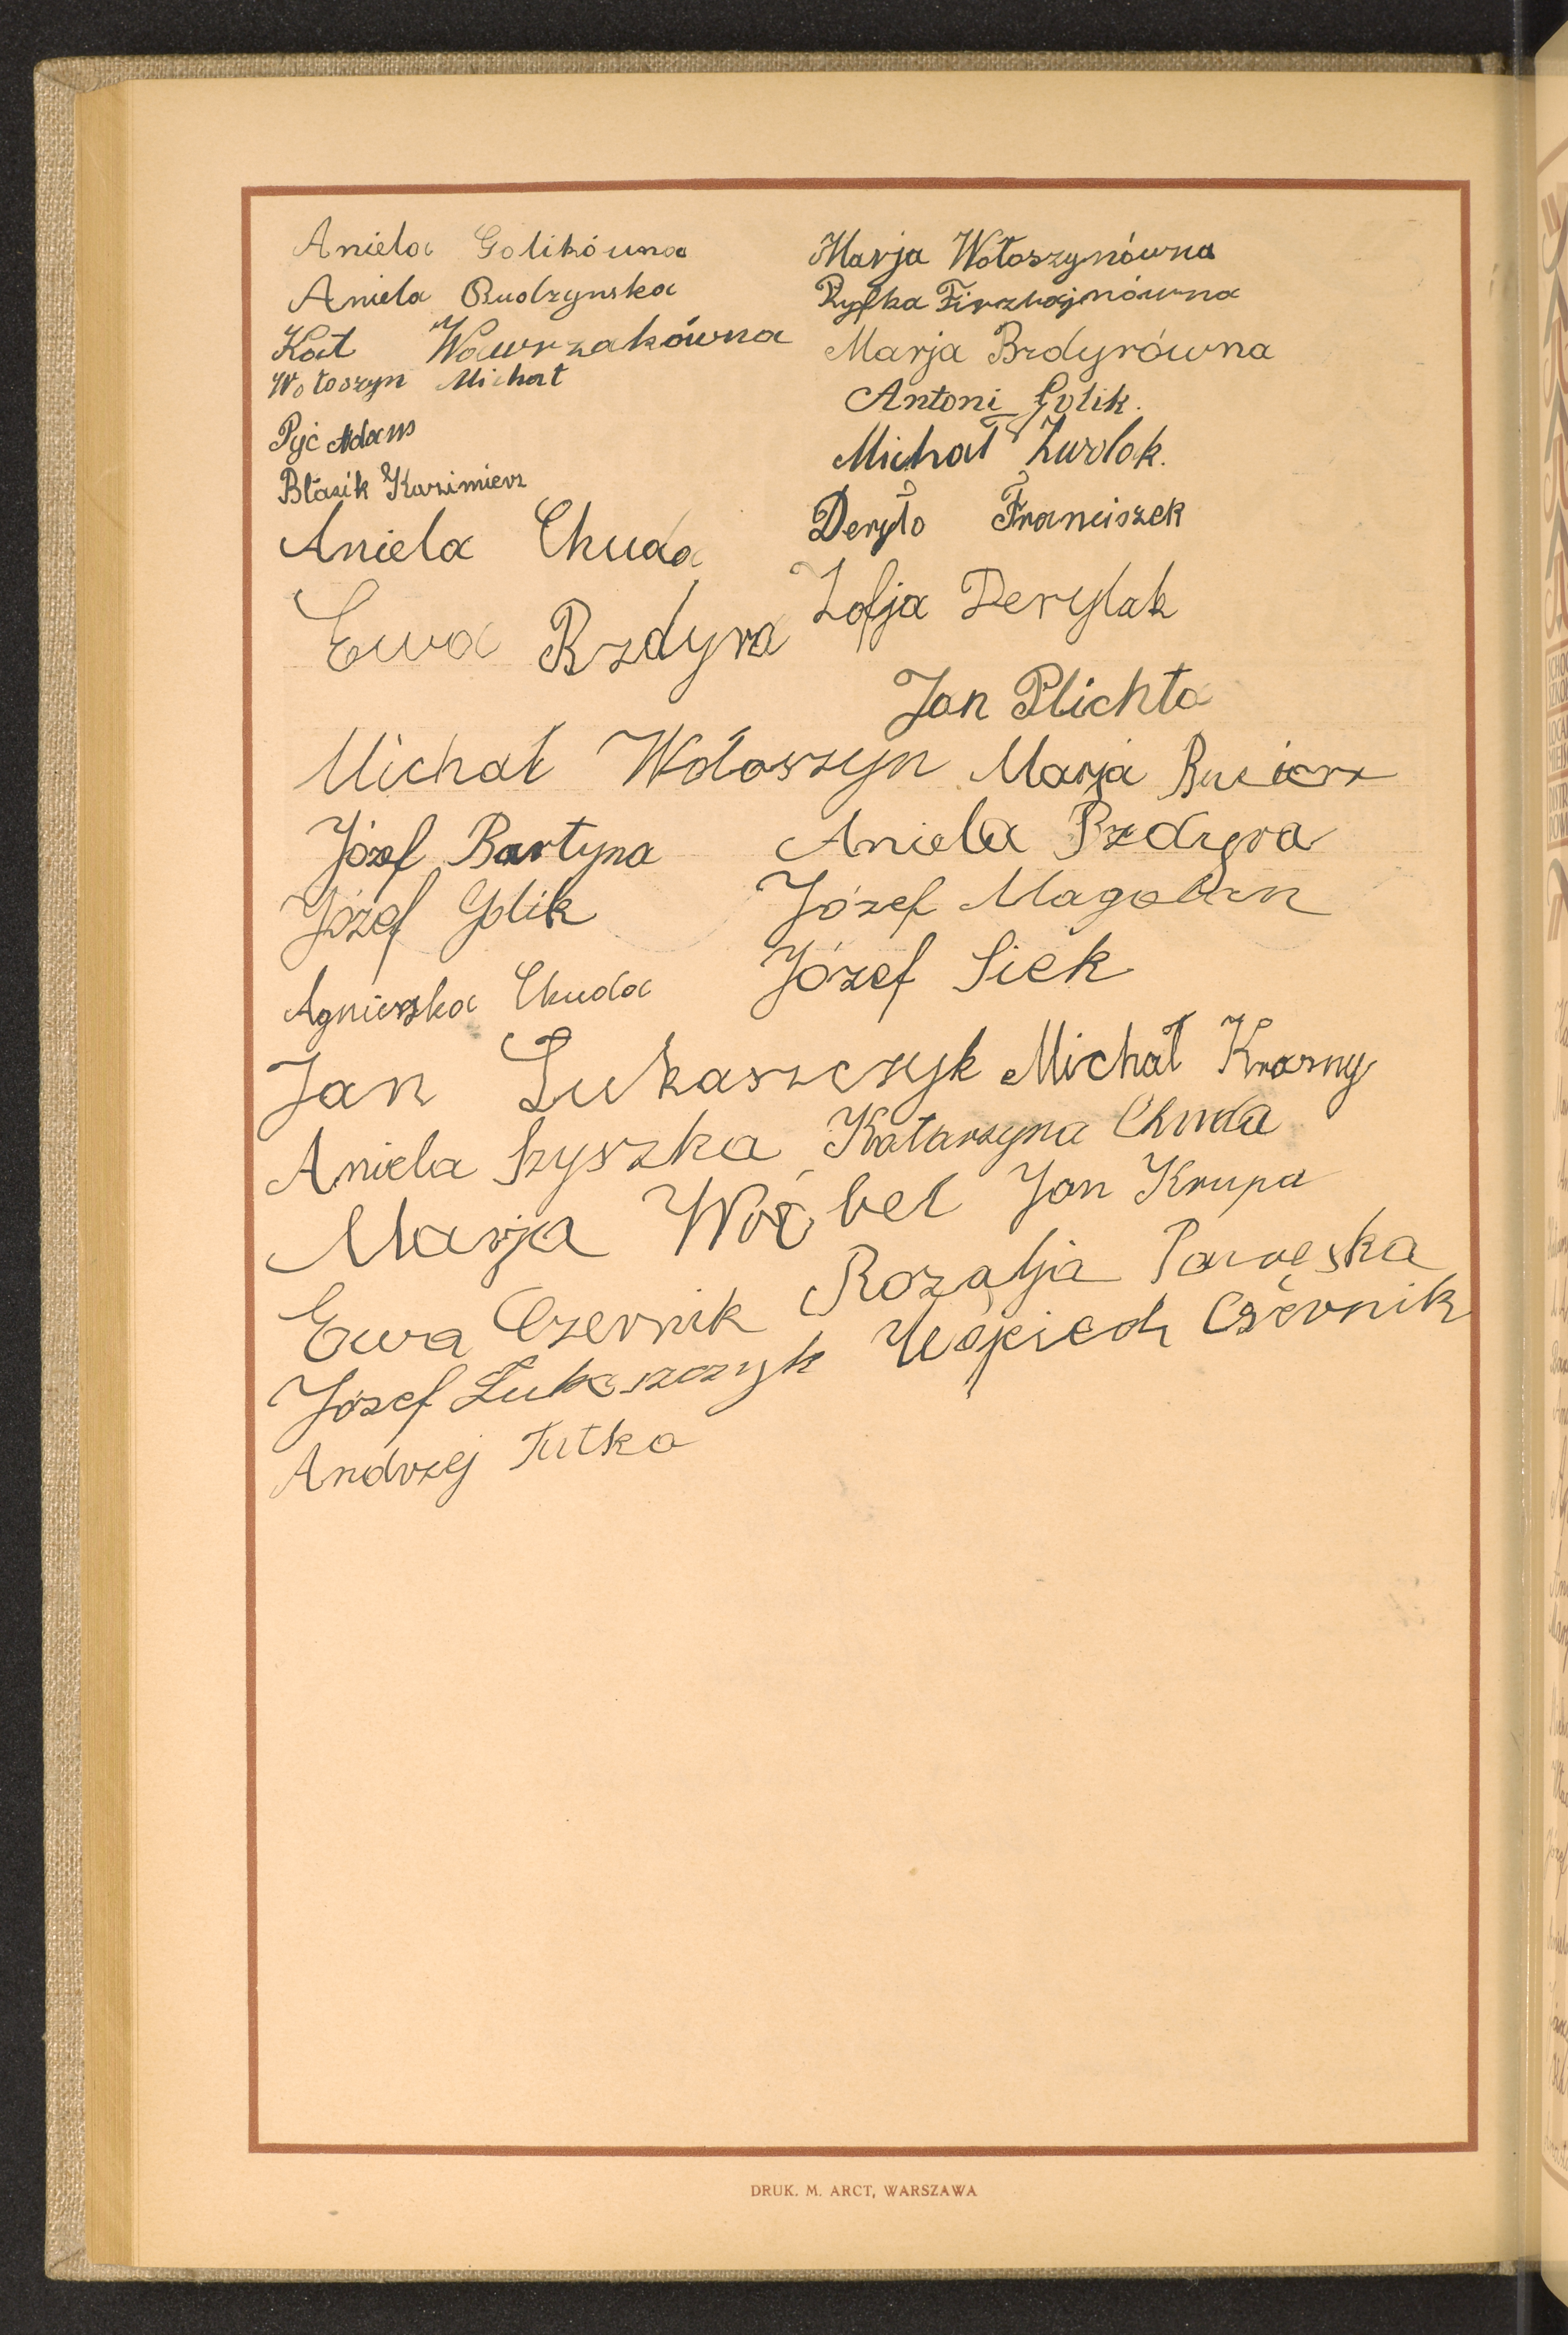 Aniela Golikówna
Aniela Budzynska
Kat Wawrzakówna
Wołoszyn Michał
Pyć Adam
Błasik Kazimierz
Aniela Chuda
Ewa Bzdyra
Michał Wołoszyn
Józef Bartyna
Józef Golik
Agnieszka Chuda
Jan Łukaszczyk
Aniela Szyszka
Marja Wróbel
Ewa Czernik
Józef Łukaszczyk
Andrzej Tutka
Marja Wołoszynówna
Ryfka
Marja Bzdyrówna
Antoni Golik.
Michał Żurlok.
Deryło Franciszek
Zofja Derylak
Jan Plichta
Marja
Aniela Bzdyra
Józef
Józef Siek
Michał Krasny
Katarzyna Chuda
Jan Krupa
Rozalja
Wojciech Czernik
DRUK. M. ARCT, WARSZAWA